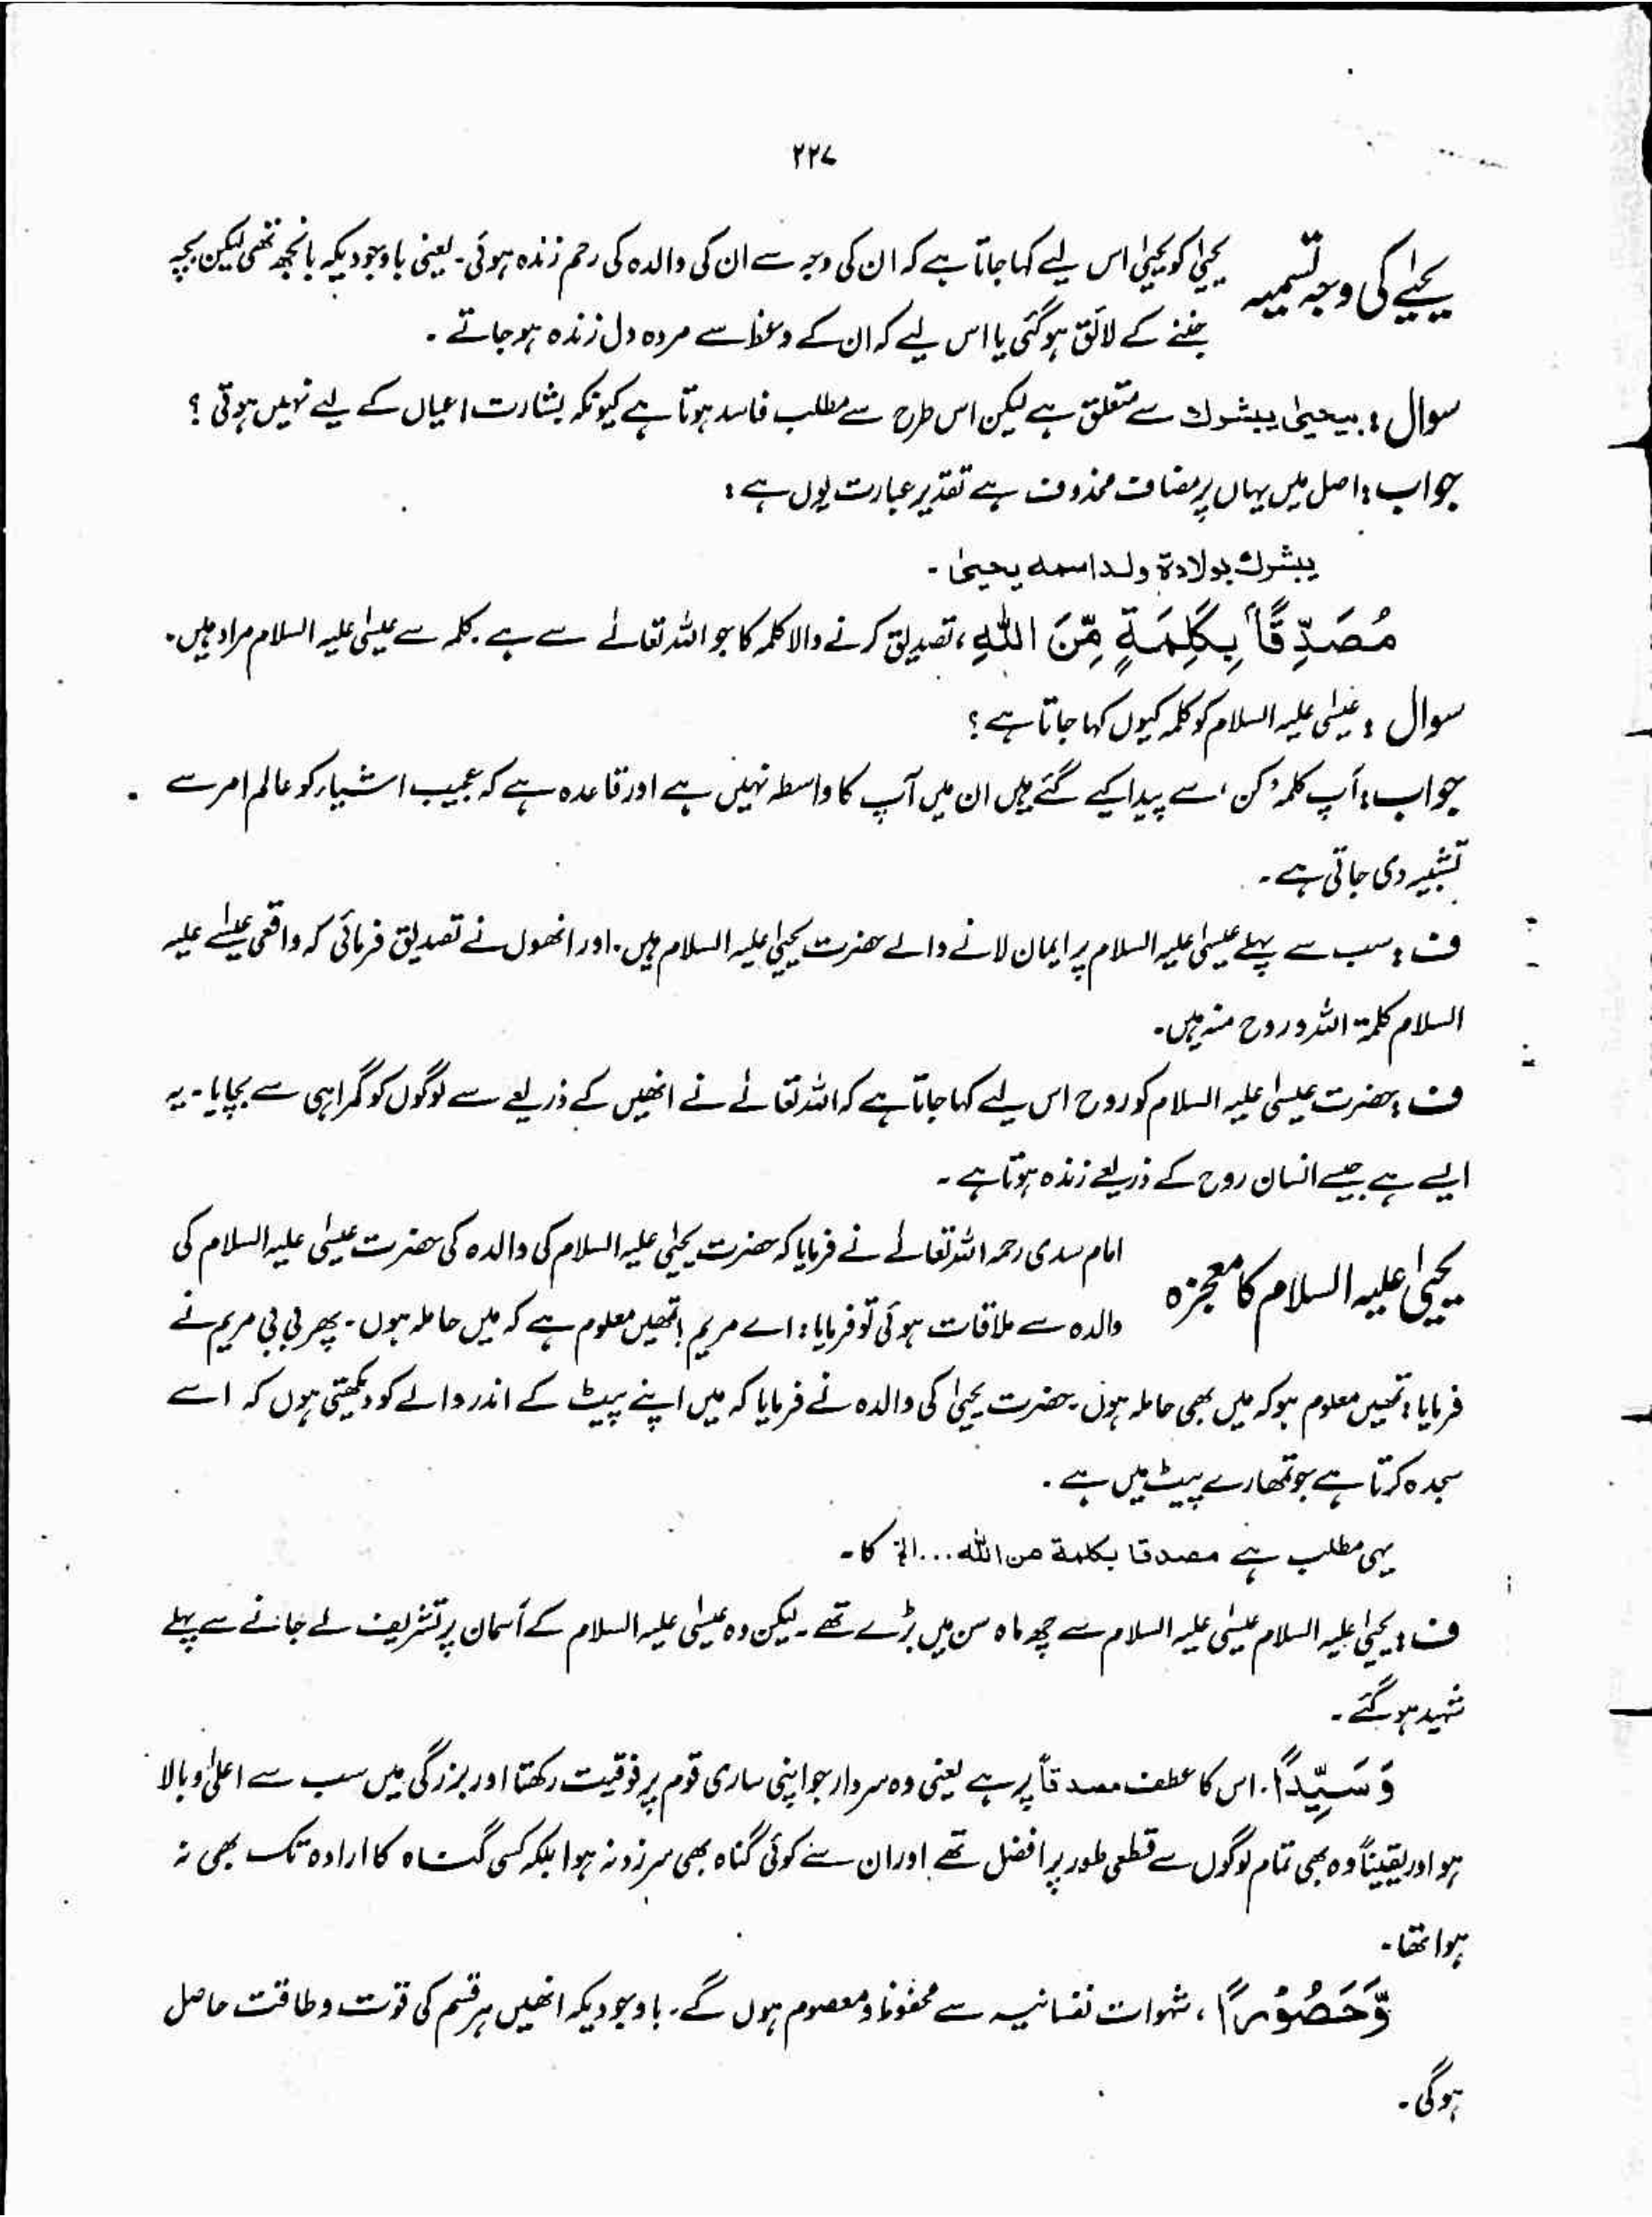 ۲۲۷
یحییٰ کی وجہ تسمیہ
یحییٰ کو یحییٰ اس لیے کہا جاتا ہے کہ ان کی وجہ سے ان کی والدہ کی رحم زندہ ہوئی۔ یعنی باوجودیکہ بانجھ تھی لیکن بچہ
جننے کے لائق ہو گئی یا اس لیے کہ ان کے وعظ سے مردہ دل زندہ ہو جاتے ۔
سوال : بیحییٰ یبشرك سے متعلق ہے لیکن اس طرح سے مطلب فاسد ہوتا ہے کیونکہ بشارت اعیان کے لیے نہیں ہوتی ؟
جواب : اصل میں یہاں پر مضاف محذوف ہے تقدیر عبارت یوں ہے :
یبشرك بولادة ولد اسمه یحییٰ ۔
مُصَدِّقًاۢ بِكَلِمَةٍ مِّنَ اللّٰهِ ، تصدیق کرنے والا کلمہ کا جو اللہ تعالےٰ سے ہے ۔ کلمہ سے عیسیٰ علیہ السلام مراد ہیں۔
سوال : عیسٰی علیہ السلام کو کلمہ کیوں کہا جاتا ہے ؟
جواب : آپ کلمہ ’کن‘ سے پیدا کیے گئے ہیں ان میں آپ کا واسطہ نہیں ہے اور قاعدہ ہے کہ عجیب اشیاء کو عالم امر سے
تشبیہ دی جاتی ہے ۔
ف : سب سے پہلے عیسیٰ علیہ السلام پر ایمان لانے والے حضرت یحییٰ علیہ السلام ہیں ۔ اور انھوں نے تصدیق فرمائی کہ واقعی عیسےٰ علیہ
السلام کلمۃ اللہ و روح منہ ہیں۔
ف : حضرت عیسٰی علیہ السلام کو روح اس لیے کہا جاتا ہے کہ اللہ تعالےٰ نے انھیں کے ذریعے سے لوگوں کو گمراہی سے بچایا ۔ یہ
ایسے ہے جیسے انسان روح کے ذریعے زندہ ہوتا ہے ۔
یحییٰ علیہ السلام کا معجزہ
امام سدی رحمہ اللہ تعالےٰ نے فرمایا کہ حضرت یحییٰ علیہ السلام کی والدہ کی حضرت عیسٰی علیہ السلام کی
والدہ سے ملاقات ہوئی تو فرمایا : اے مریم ! تمھیں معلوم ہے کہ میں حاملہ ہوں ۔ پھر بی بی مریم نے
فرمایا : تمھیں معلوم ہو کہ میں بھی حاملہ ہوں ۔ حضرت یحییٰ کی والدہ نے فرمایا کہ میں اپنے پیٹ کے اندر والے کو دیکھتی ہوں کہ اسے
سجدہ کرتا ہے جو تمھارے پیٹ میں ہے ۔
یہی مطلب ہے مصدقا بكلمة من الله ... الخ کا ۔
ف : یحییٰ علیہ السلام عیسٰی علیہ السلام سے چھ ماہ سن میں بڑے تھے ۔ لیکن وہ عیسٰی علیہ السلام کے آسمان پر تشریف لے جانے سے پہلے
شہید ہو گئے ۔
وَ سَيِّدًا ۔ اس کا عطف مصدقاً پر ہے یعنی وہ سردار جو اپنی ساری قوم پر فوقیت رکھتا اور بزرگی میں سب سے اعلیٰ و بالا
ہو اور یقیناً وہ بھی تمام لوگوں سے قطعی طور پر افضل تھے اور ان سے کوئی گناہ بھی سرزد نہ ہوا بلکہ کسی گناہ کا ارادہ تک بھی نہ
ہوا تھا ۔
وَّحَصُوْرًا ، شہوات نفسانیہ سے محفوظ و معصوم ہوں گے ۔ باوجودیکہ انھیں ہر قسم کی قوت و طاقت حاصل
ہوگی ۔